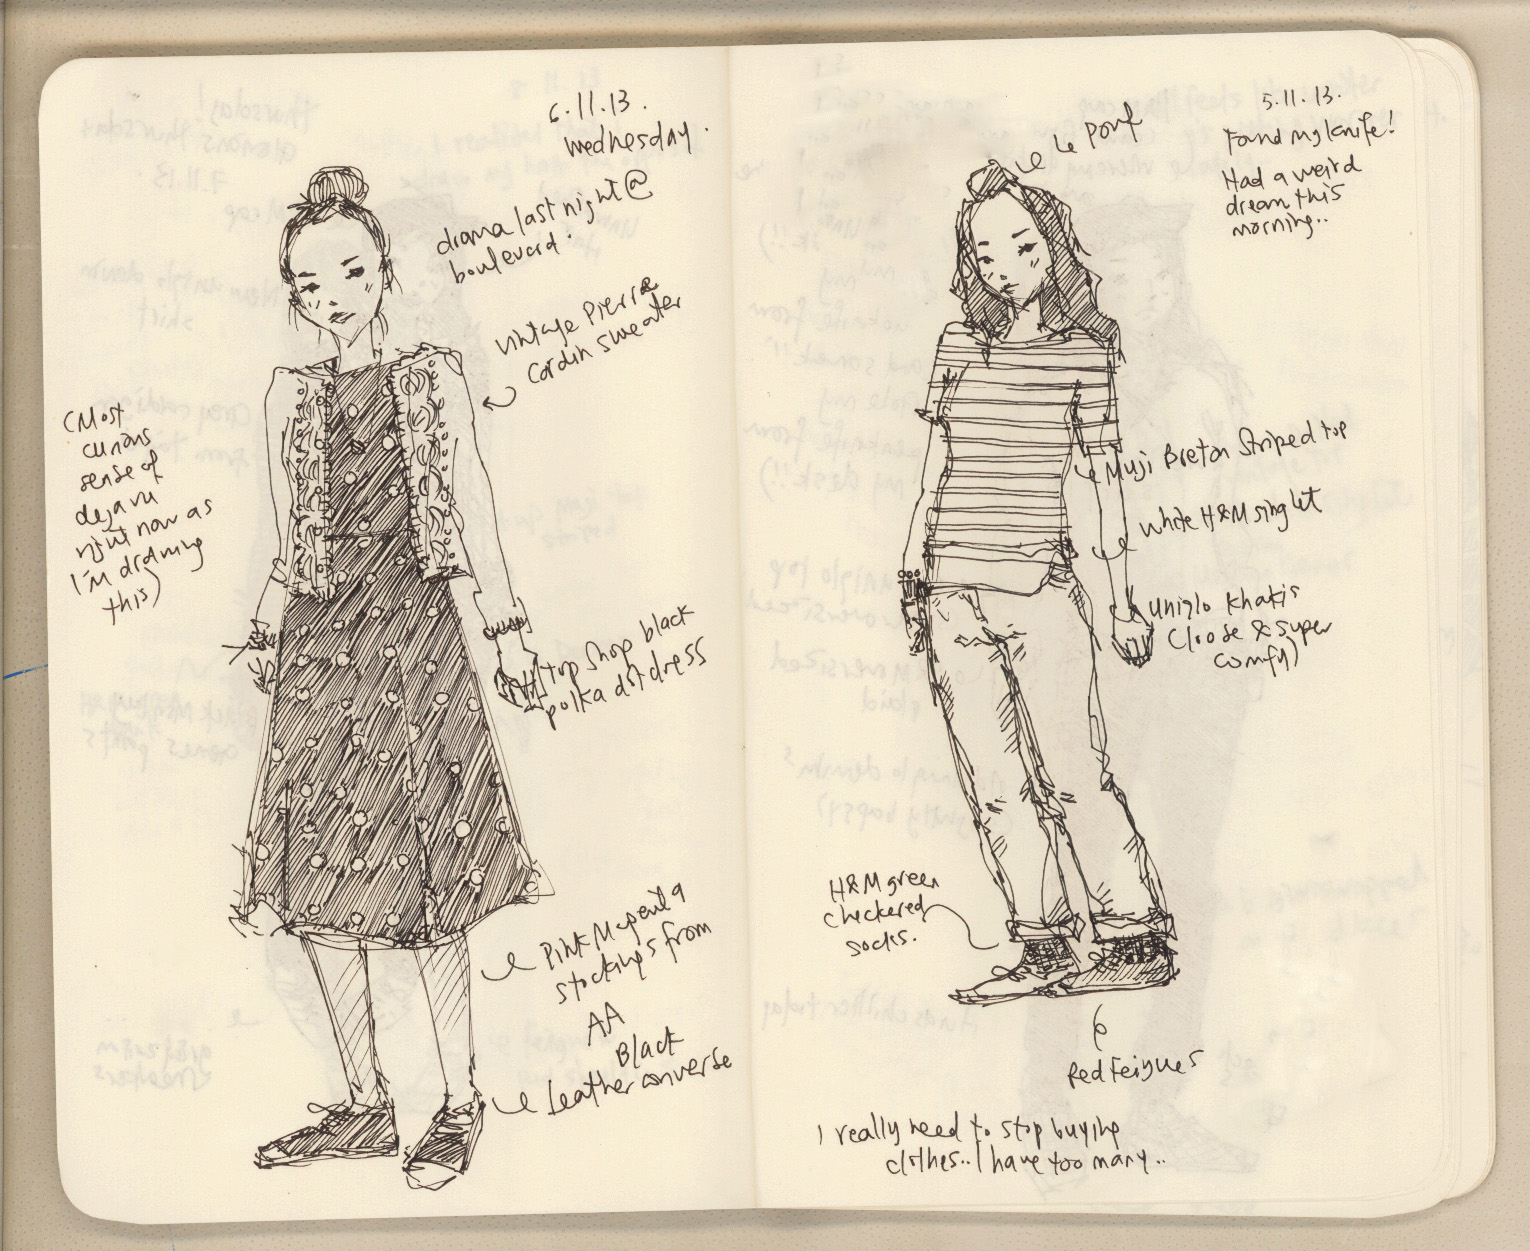 6.11.13.
Wednesday.
drama last night @
boulevard.
vintage Pierre
Cardin sweater
(Most
curious
sense of
deja vu
right now as
I'm drawing
this)
top shop black
polka dot dress
Pink
stockings from
AA
Black
leather converse
5.11.13.
Found my knife!
Had a weird
dream this
morning..
Le Pouf
Muji Breton Striped top
white H&M singlet
uniqlo khakis
(loose & super
comfy)
H&M green
checkered
socks.
Red Feiyues
I really need to stop buying
clothes.. I have too many..